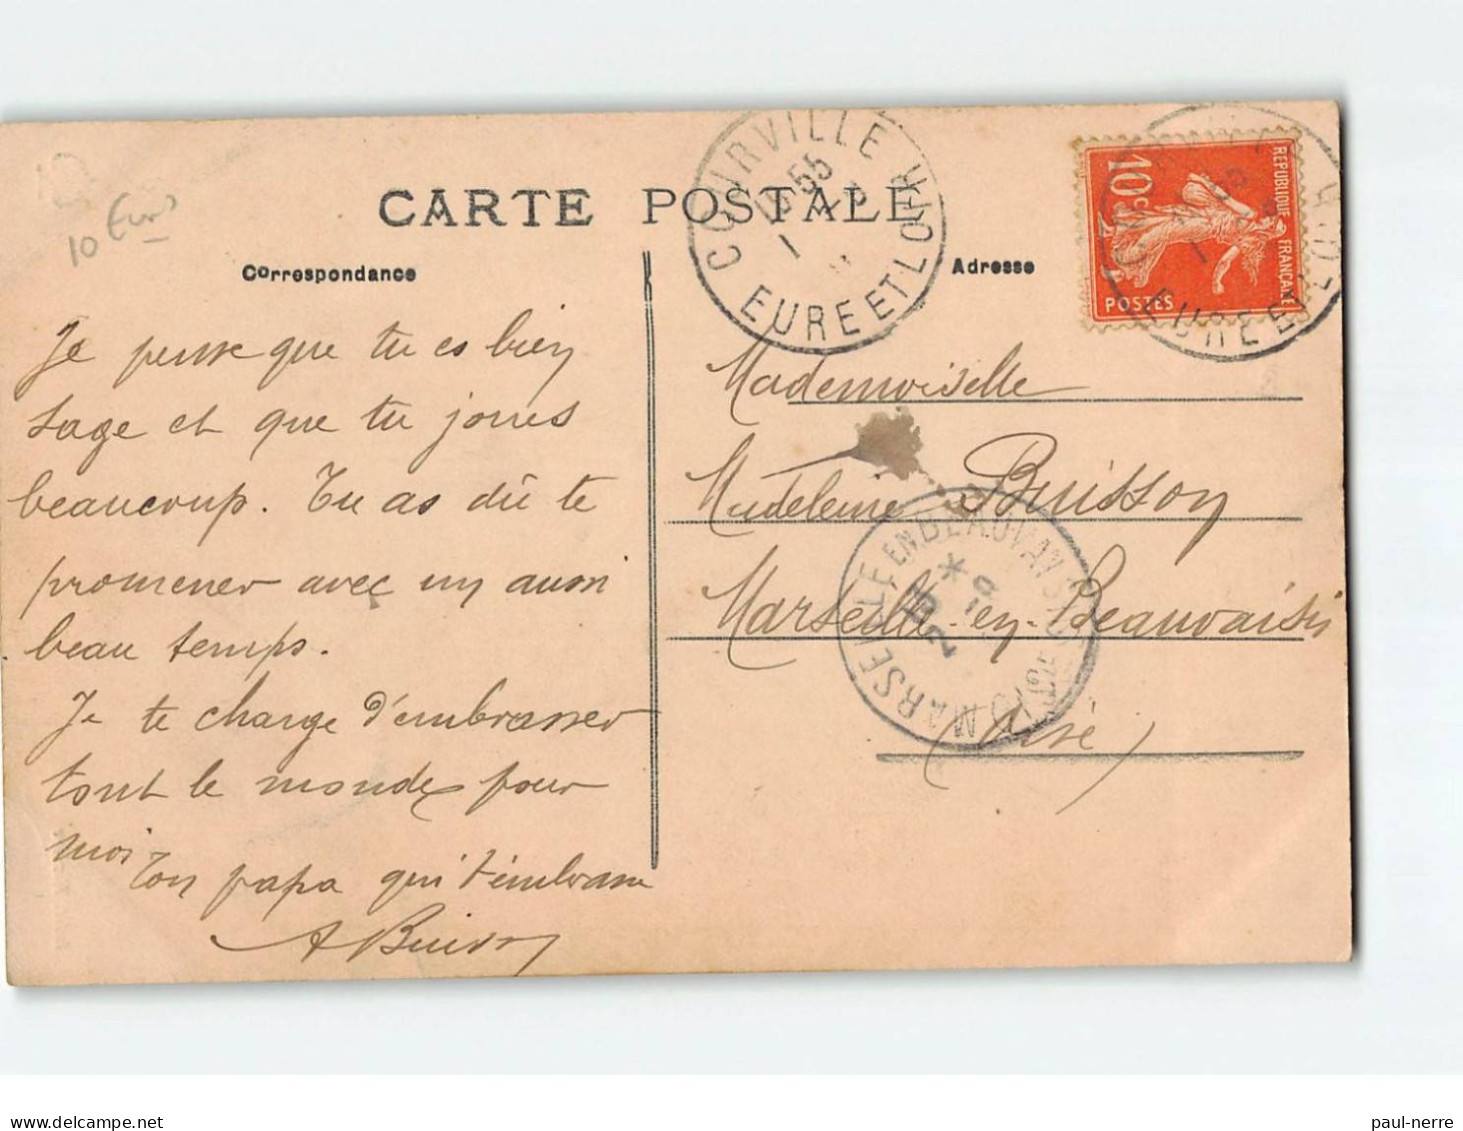 10 Euros
CARTE POSTALE
Correspondance
Adresse
COURVILLE
EURE ET LOIR
REPUBLIQUE FRANÇAISE
10c
POSTES
EURE ET LOIR
Je pense que tu es bien
sage et que tu joues
beaucoup. Tu as dû te
promener avec un aussi
beau temps.
Je te charge d'embrasser
tout le monde pour
moi
Ton papa qui t'embrasse
A Buisson
Mademoiselle
Madeleine Buisson
Marseille-en-Beauvaisis
(Oise)
MARSEILLE EN BEAUVAISIS
OISE
delcampe.net
paul-nerre